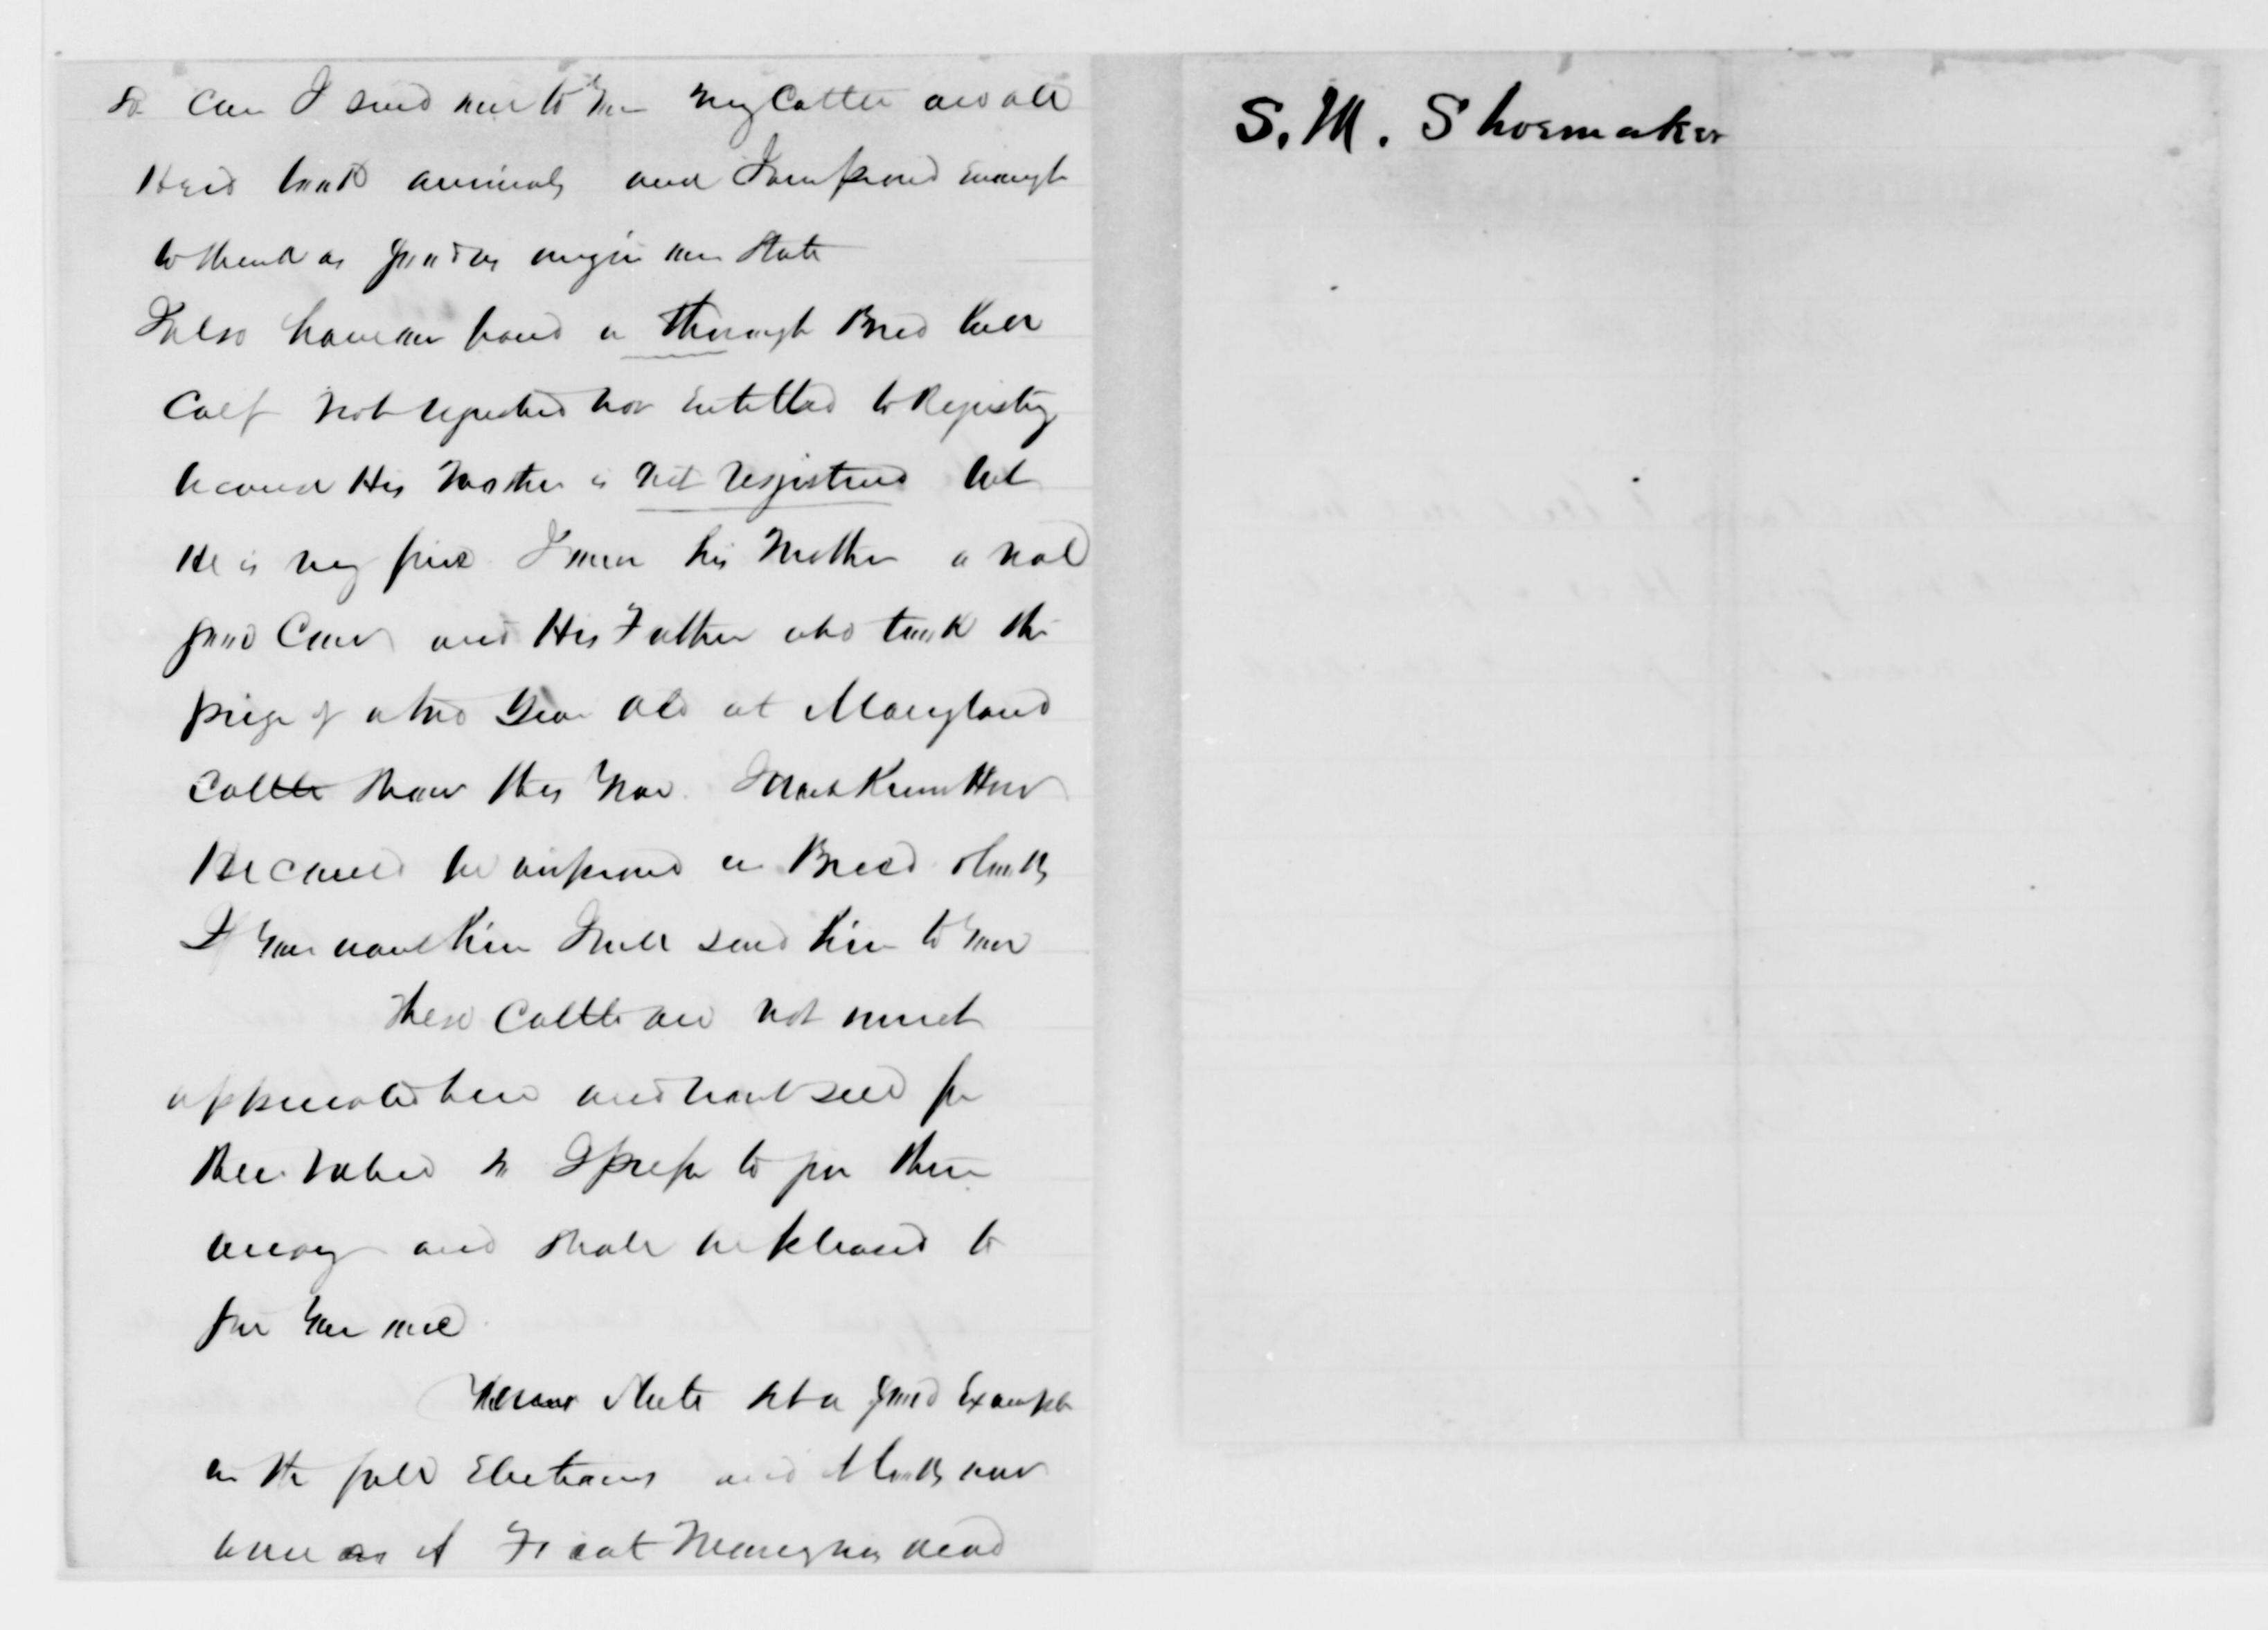 So can I send one to you My Cattle are all
Herd book animals and I am proud enough
to think as good as any in our State
I also have on hand a thorough Bred Bull
Calf not registered nor Entitled to Registry
because His Mother is not registered but
He is very fine. I own his Mother a not
good Cow and His Father who took the
prize of a two Year old at Maryland
Cattle Show this Year. I don't Know How
He could be improved in Breed or looks
If You want him I will send him to You
These Cattle are not much
appreciated here and wont sell for
their value so I prefer to give them
away and shall be pleased to
give You one
Your State set a good Example
in the fall Elections and it looks now
here as if Fiat Money was dead
S. M. Shoemaker